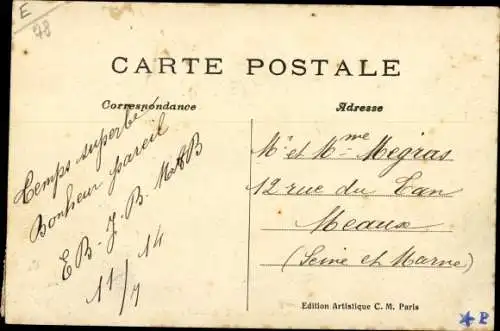 E
78
CARTE POSTALE
Correspondance
Adresse
Temps superbe
Bonheur pareil
EB. J. B. MAB
11/7 14
Mr et Mme Megras
12 rue du Tan
Meaux
(Seine et Marne)
Edition Artistique C. M. Paris